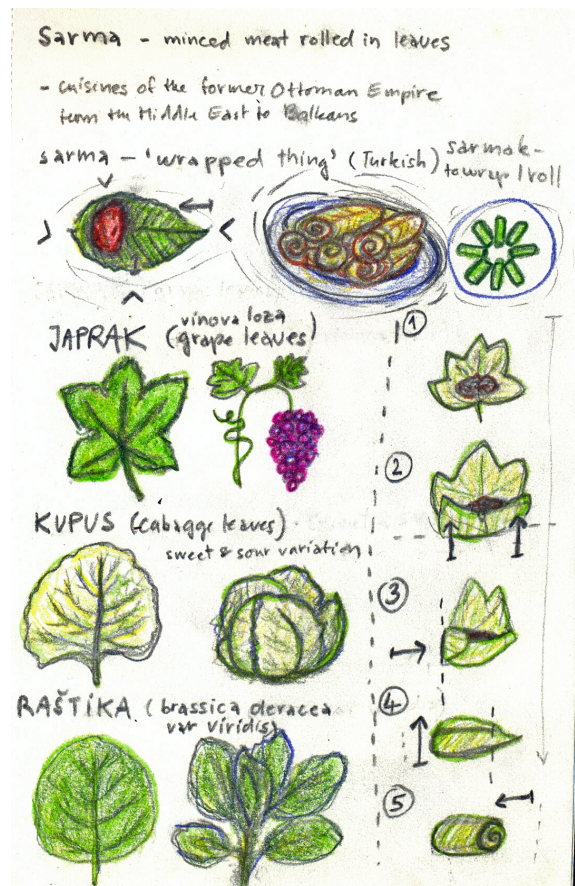 Sarma - minced meat rolled in leaves
- cuisines of the former Ottoman Empire
from the Middle East to Balkans
sarma - 'wrapped thing' (Turkish)
sarmak -
to wrap / roll
JAPRAK (vinova loza
grape leaves)
KUPUS (cabagge leaves)
sweet & sour variation
RAŠTIKA (brassica oleracea
var viridis)
1
2
3
4
5